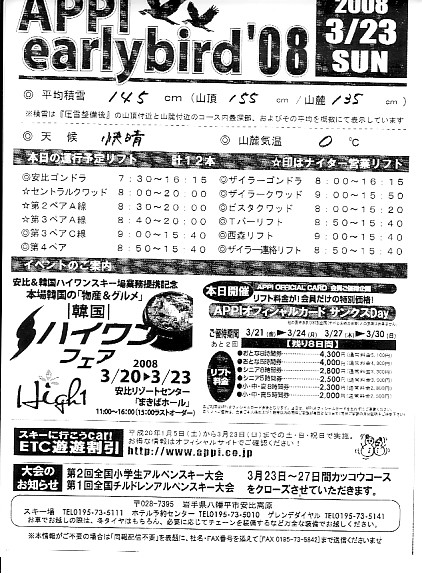 APPI
earlybird '08
2008
3/23
SUN
◎ 平均積雪 145 cm (山頂 155 cm / 山麓 135 cm)
※積雪は『圧雪整備後』の山頂付近と山麓付近のコース内最深部、およびその平均を複数にて表示しています
◎ 天 候 快晴 ◎ 山麓気温 0 ℃
本日の運行予定リフト 計12本 ☆印はナイター営業リフト
◎安比ゴンドラ 7:30～16:15 ◎ザイラーゴンドラ 8:00～16:15
☆セントラルクワッド 8:00～20:00 ◎ザイラークワッド 8:00～15:50
☆第2ペアA線 8:30～20:00 ◎ビスタクワッド 8:00～15:50
☆第3ペアA線 8:40～20:00 ◎Tバーリフト 8:50～15:40
◎第3ペアC線 9:00～15:40 ◎西森リフト 8:50～15:40
◎第4ペア 8:50～15:40 ◎ザイラー連絡リフト 8:50～15:40
イベントのご案内
安比&韓国ハイワンスキー場業務提携記念
本場韓国の「物産&グルメ」
韓国
ハイワン
フェア
2008
3/20▶3/23
安比リゾートセンター
「まきばホール」
11:00～16:00(15:00ラストオーダー)
High1
本日開催
APPI OFFICIAL CARD 会員ご優待企画
リフト料金が!会員だけの特別価格!
APPIオフィシャルカード サンクスDay
ご優待期間 3/21(金)～3/24(月) 3/27(木)～3/30(日)
あと2回 【残り8日間】
リフト料金
●おとな8時間券 4,300円
●おとな5時間券 4,000円
●シニア8時間券 2,800円
●シニア5時間券 2,500円
●小・中・高8時間券 2,300円
●小・中・高5時間券 2,000円
スキーに行こうcar!
ETC遊遊割引
平成20年1月5日(土)から3月23日(日)までの土・日・祝日で実施。
お得な情報はオフィシャルサイトでご確認ください!
http://www.appi.co.jp
大会の
お知らせ
第2回全国小学生アルペンスキー大会
第1回全国チルドレンアルペンスキー大会
3月23日～27日間カッコウコース
をクローズさせていただきます。
〒028-7395 岩手県八幡平市安比高原
スキー場 TEL0195-73-5111 ホテルご予約センター TEL0195-73-5010 ゲレンデセンター TEL0195-73-5141
お車でお越しの際は、冬タイヤはもちろん、必要に応じてチェーンを装備するなど万全な装備でお越しください。
※本情報がご不要の場合は「同報配信不要」を表題し、社名・FAX番号を添えて「FAX 0195-73-5642」まで送信くださいませ